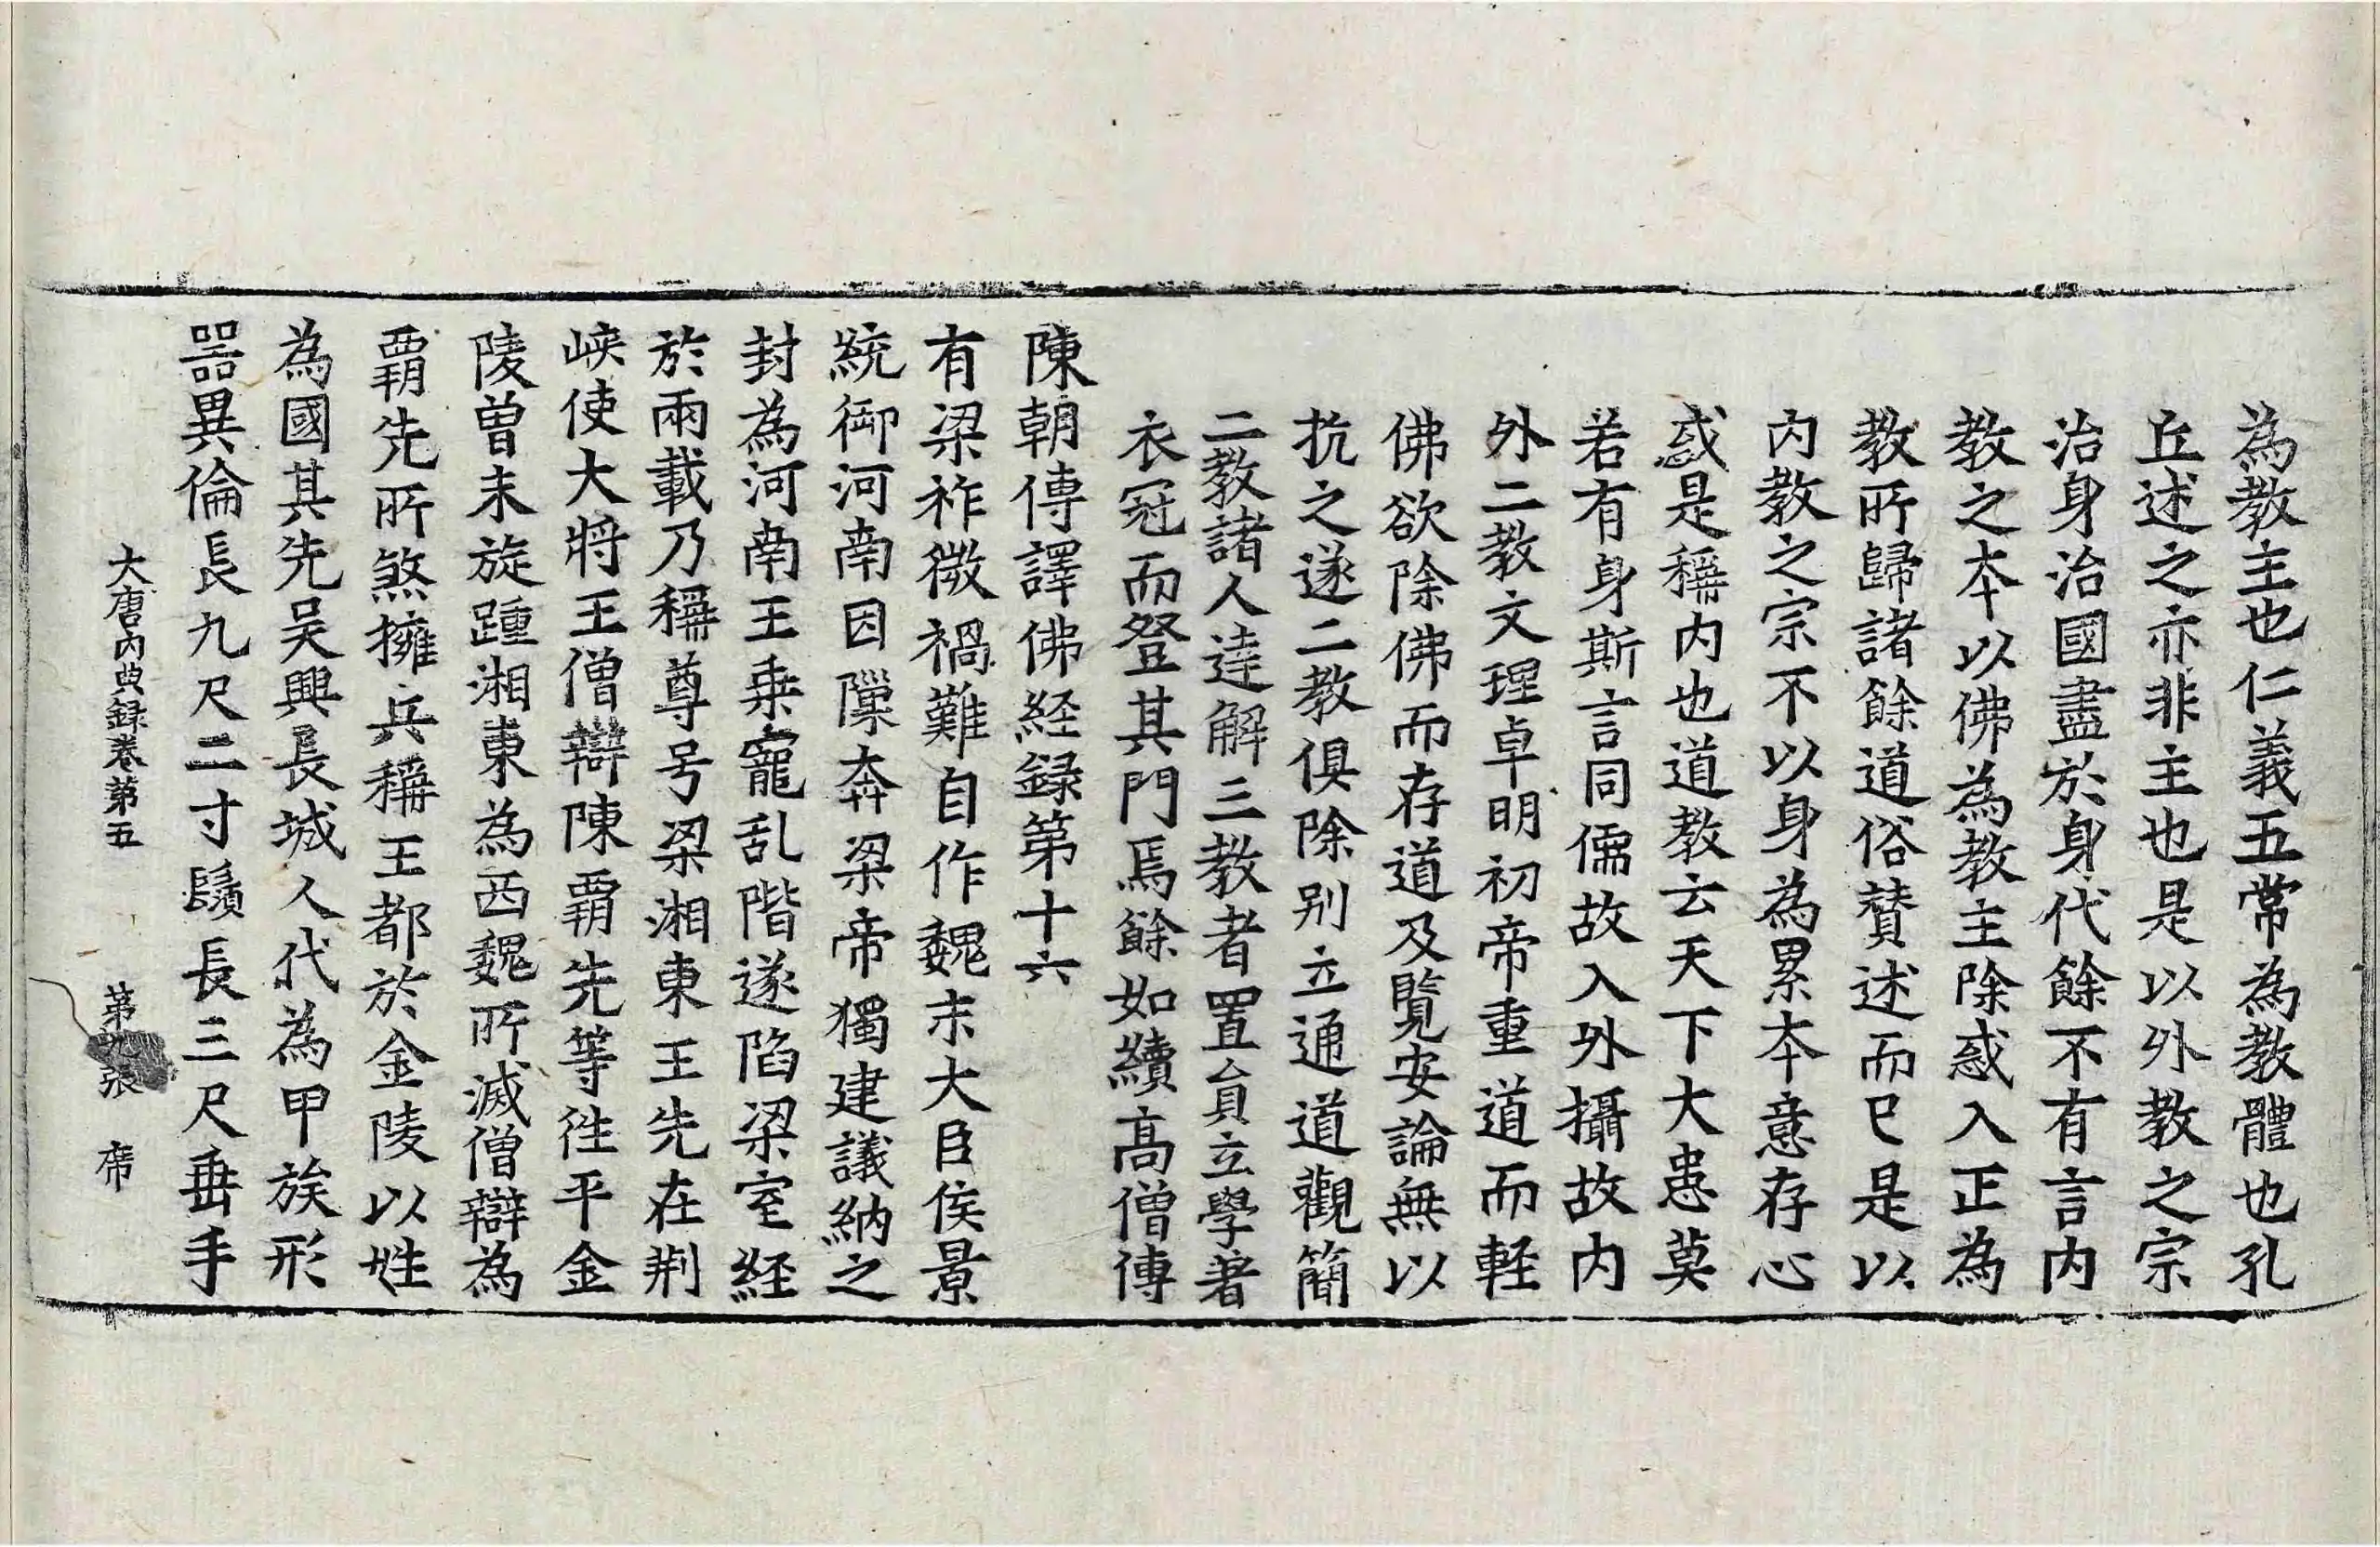 為教主也仁義五常為教體也孔
丘述之亦非主也是以外教之宗
治身治國盡於身代餘不有言內
教之本以佛為教主除惑入正為
教所歸諸餘道俗賛述而已是以
內教之宗不以身為累本意存心
惑是稱內也道教云天下大患莫
若有身斯言同儒故入外攝故內
外二教文理卓明初帝重道而軽
佛欲除佛而存道及覧安論無以
抗之遂二教俱除別立通道觀簡
二教諸人達解三教者置貟立學著
衣冠而登其門焉餘如續高僧傳
陳朝傳譯佛経録第十六
有梁祚微禍難自作魏末大臣侯景
統御河南因隟奔梁帝獨建議納之
封為河南王乗寵乱階遂陷梁室経
於兩載乃稱尊号梁湘東王先在荆
峽使大將王僧辯陳覇先等徃平金
陵曽未旋踵湘東為西魏所滅僧辯為
覇先所煞擁兵稱王都於金陵以姓
為國其先吴興長城人代為甲族形
器異倫長九尺二寸鬚長三尺垂手
大唐內典録卷第五 第 張 席